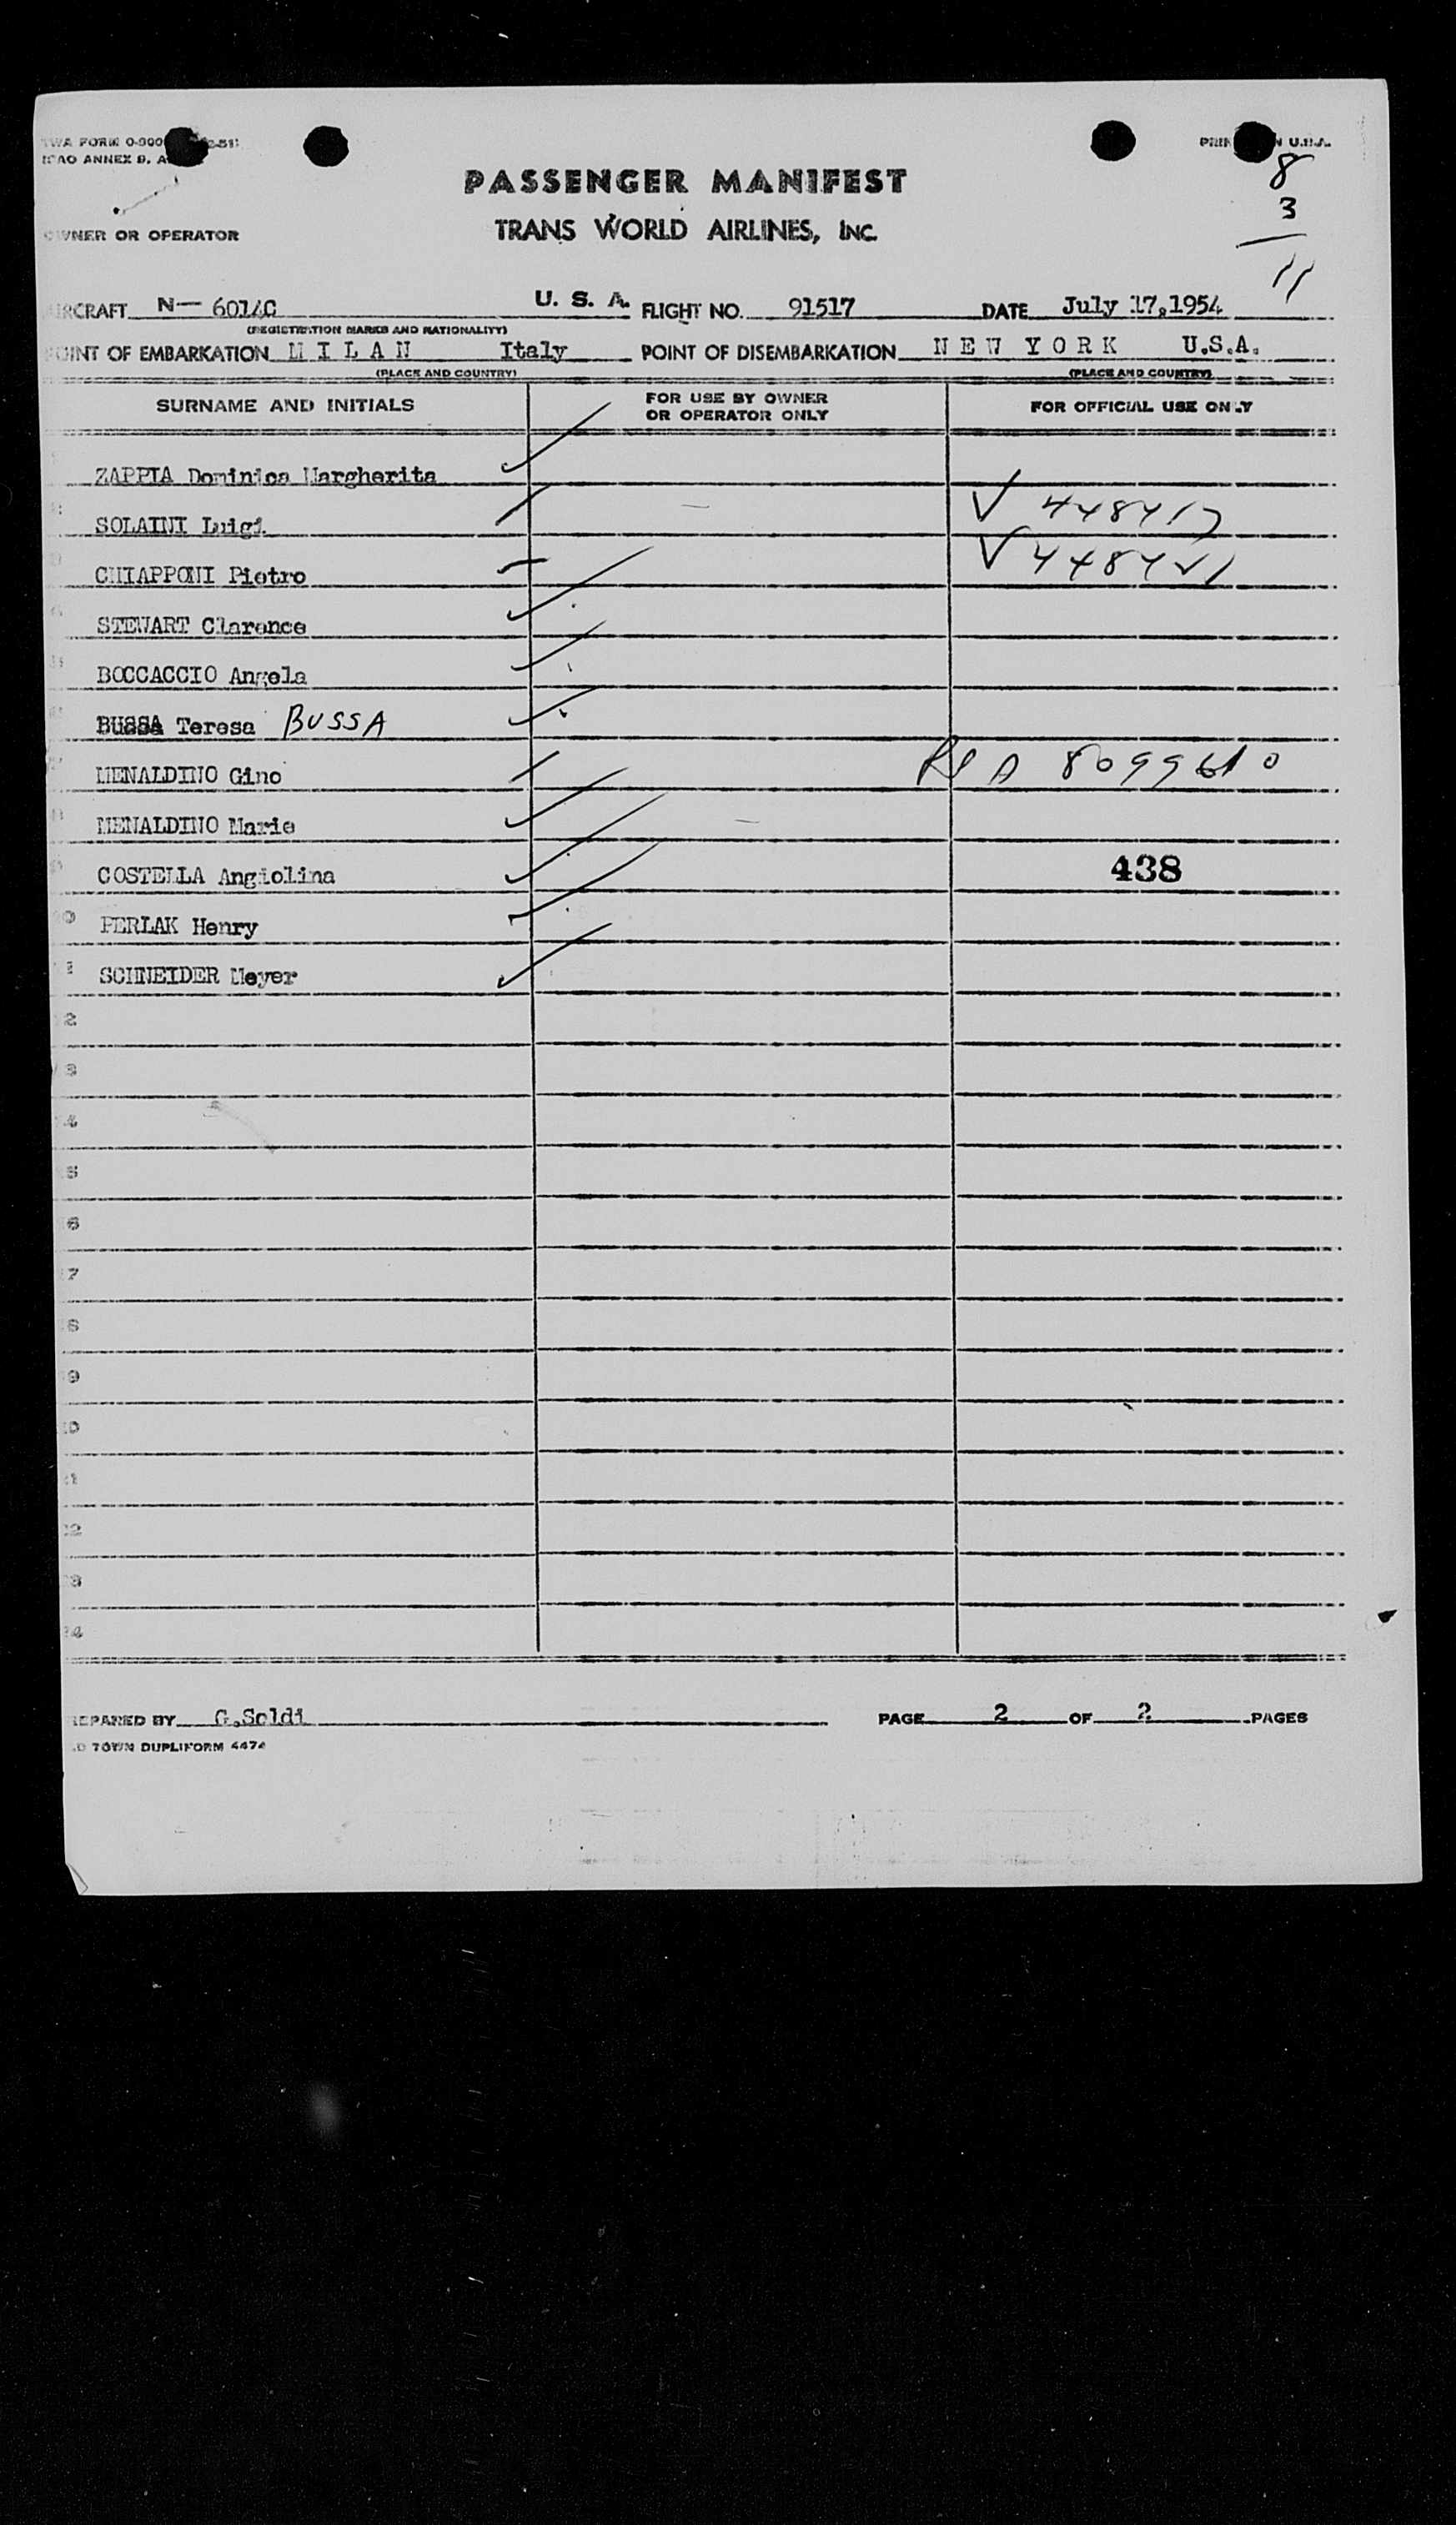 TWA FORM 0-900
ICAO ANNEX 9, A
PRIN N U.S.A.
8
3
11
PASSENGER MANIFEST
TRANS WORLD AIRLINES, INC.
OWNER OR OPERATOR
AIRCRAFT N— 6014C U. S. A. FLIGHT NO. 91517 DATE July 17,1954
(REGISTRATION MARKS AND NATIONALITY)
POINT OF EMBARKATION M I L A N Italy POINT OF DISEMBARKATION N E W Y O R K U.S.A.
(PLACE AND COUNTRY) (PLACE AND COUNTRY)
SURNAME AND INITIALS FOR USE BY OWNER OR OPERATOR ONLY FOR OFFICIAL USE ONLY
ZAPPIA Dominica Margherita ✓
SOLAINI Luigi ✓
CHIAPPONI Pietro ✓
STEWART Clarence ✓
BOCCACCIO Angela ✓
BUSSA Teresa BUSSA ✓
MENALDINO Gino
MENALDINO Marie ✓
COSTELLA Angiolina ✓ 438
10 PERLAK Henry ✓
1 SCHNEIDER Meyer ✓
2
3
4
5
6
7
8
9
0
1
2
3
4
PREPARED BY G.Soldi PAGE 2 OF 2 PAGES
TOWN DUPLIFORM 4474